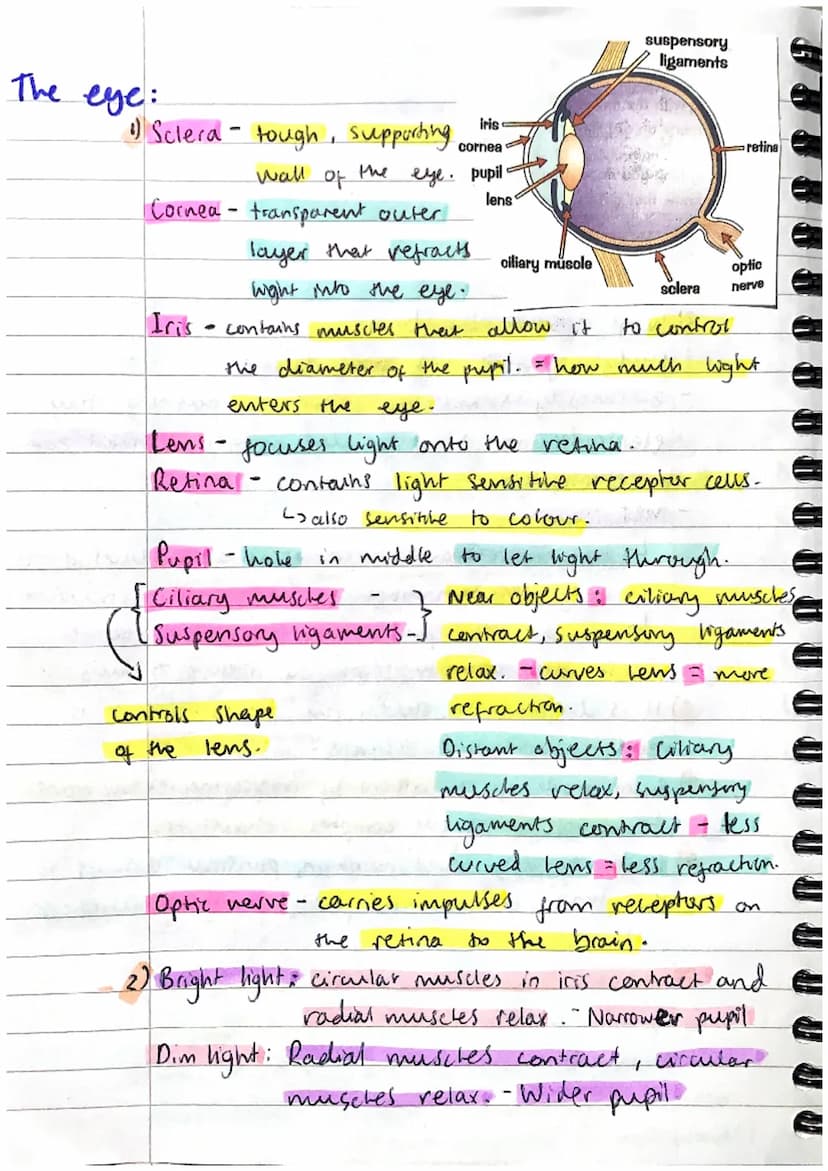 The eye:
suspensory
ligaments
iris
cornea
pupil
lens
ciliary muscle
sclera
optic
nerve
retina
1) Sclera - tough, supporting
wall of the eye.
Cornea - transparent outer
layer that refracts
light into the eye.
Iris - contains muscles that allow it to control
the diameter of the pupil. = how much light
enters the eye.
Lens - focuses light onto the retina.
Retina - contains light sensitive receptor cells.
↳ also sensitive to colour.
Pupil - hole in middle to let light through.
Ciliary muscles -
Suspensory ligaments -
controls shape
of the lens.
Near objects: ciliary muscles
contract, suspensory ligaments
relax. - curves lens = more
refraction.
Distant objects: ciliary
muscles relax, suspensory
ligaments contract - less
curved lens = less refraction.
Optic nerve - carries impulses from receptors on
the retina to the brain.
2) Bright light: circular muscles in iris contract and
radial muscles relax. - Narrower pupil
Dim light: Radial muscles contract, circular
muscles relax. - Wider pupil.